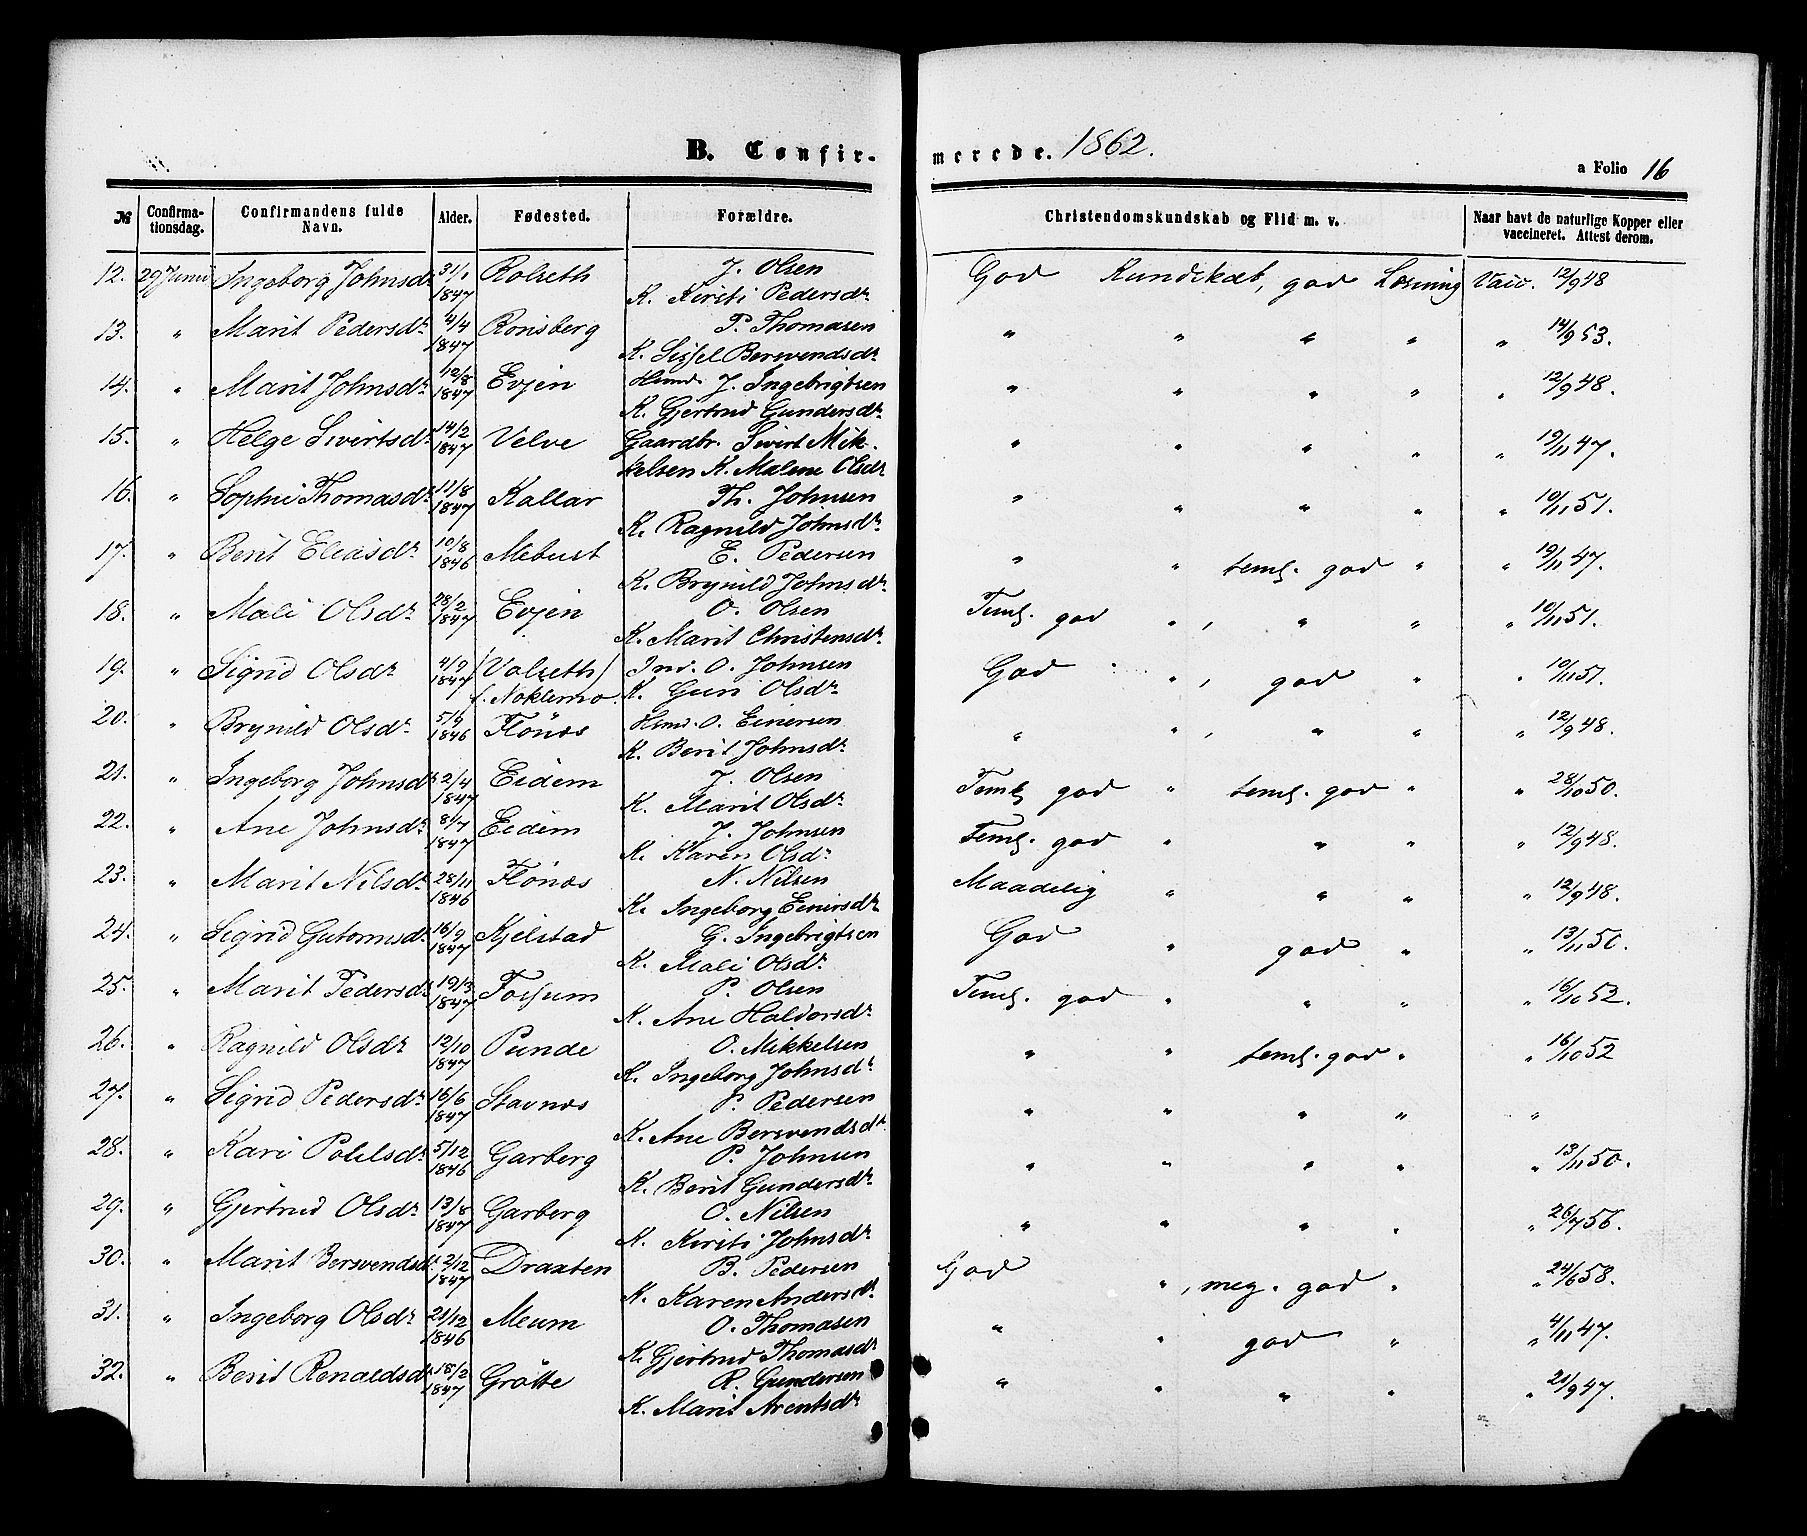 B. Confirmerede. 1862.
a Folio 16
№ Confirmationsdag. Confirmandens fulde Navn. Alder. Fødested. Forældre. Christendomskundskab og Flid m. v. Naar havt de naturlige Kopper eller vaccineret. Attest derom.
12. 29 Juni Ingeborg Johnsdr 31/1 1847 Rolseth J. Olsen God Kundskab, god Læsning Vacc. 12/9 48
K. Kirsti Pedersdr
13. " Marit Pedersdr 4/4 1847 Ronsberg P. Thomasen " " " " " 14/9 53.
K. Sissel Bersvendsdr
14. " Marit Johnsdr 12/8 1847 Evjen Huusm. J. Ingebrigtsen " " " " " 12/9 48.
K. Gjertrud Gundersdr
15. " Helge Sivertsdr 14/2 1847 Velve Gaardbr. Sivert Mik- " " " " " 19/11 47.
kelsen K. Malene Olsdr
16. " Sophie Thomasdr 12/8 1847 Kallar Th. Johnsen " " " " " 10/11 51.
K. Ragnild Johnsdr
17. " Berit Eliasdr 10/8 1846 Mebust E. Pedersen " " teml. god " " 19/11 47.
K. Brynild Johnsdr
18. " Mali Olsdr 28/2 1847 Evjen O. Olsen Teml. god ", " " " 10/11 51.
K. Marit Christensdr
19. " Sigrid Olsdr 4/9 1847 (Volseth) Ind. O. Johnsen God ", god " " 10/11 51.
f. Noklemo. K. Guri Olsdr
20. " Brynild Olsdr 5/9 1846 Flönes Huusm. O. Einersen " ", " " " 12/9 48.
K. Berit Johnsdr
21. " Ingeborg Johnsdr 2/4 1847 Eidem J. Olsen Teml. god " teml. god " " 28/10 50.
K. Marit Olsdr
22. " Ane Johnsdr 8/7 1847 Eidem J. Johnsen Teml. god " " " " 12/9 48.
K. Karen Olsdr
23. " Marit Nilsdr 28/11 1846 Flönes N. Nilsen Maadelig " " " " 12/9 48.
K. Ingeborg Einersdr
24. " Sigrid Gutormsdr 16/9 1847 Kjelstad G. Ingebrigtsen God " god " " 13/11 50.
K. Mali Olsdr
25. " Marit Pedersdr 19/3 1847 Fossum P. Olsen Teml. god " " " " 16/10 52.
K. Ane Haldorsdr
26. " Ragnild Olsdr 12/10 1847 Punde O. Mikkelsen " " teml. god " " 16/10 52
K. Ingeborg Johnsdr
27. " Sigrid Pedersdr 16/6 1847 Stavnes P. Pedersen " " " " "
K. Ane Bersvendsdr
28. " Kari Povelsdr 5/12 1846 Garberg P. Johnsen " " " " " 13/11 50.
K. Berit Gundersdr
29. " Gjertrud Olsdr 13/8 1847 Garberg O. Nilsen " " " " " 26/7 56.
K. Kirsti Johnsdr
30. " Marit Bersvendsdr 2/12 1847 Draxten B. Pedersen God ", meg. god " " 24/6 58.
K. Karen Andersdr
31. " Ingeborg Olsdr 21/12 1846 Meum O. Thomasen " " god " " 4/11 47.
K. Gjertrud Thomasdr
32. " Berit Renaldsdr 18/2 1847 Grötte R. Gundersen " " " " " 21/9 47.
K. Marit Arentsdr